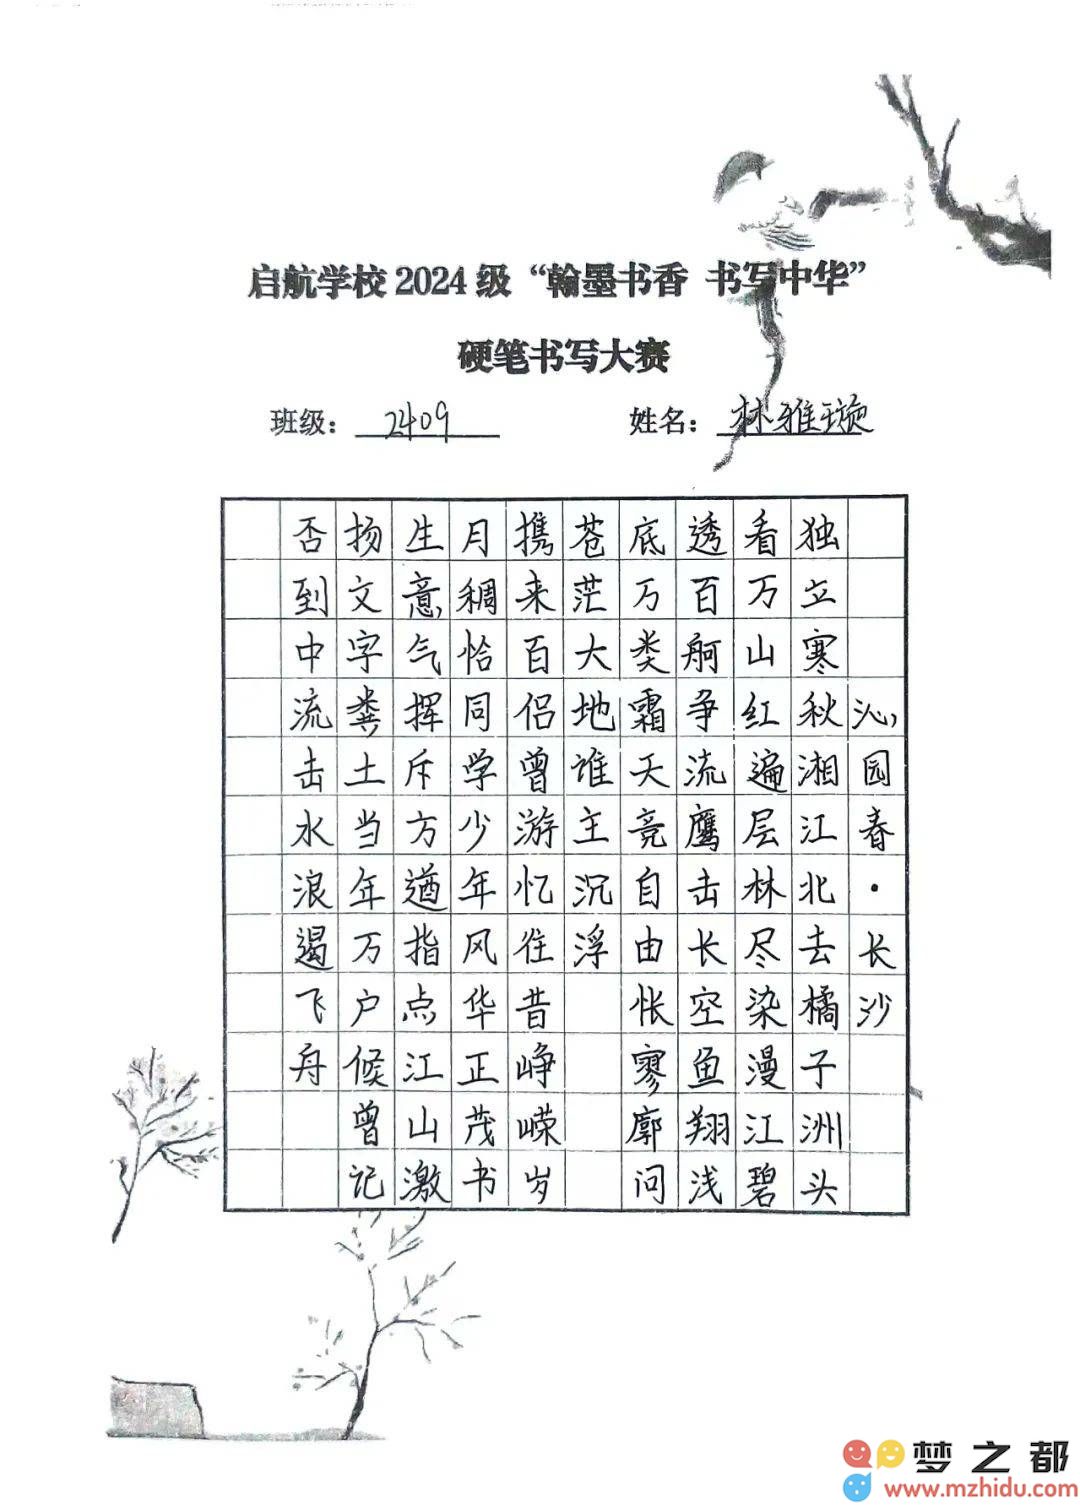 启航学校2024级“翰墨书香 书写中华”
硬笔书写大赛
班级： 2409 姓名： 林雅璇
沁园春·长沙
独立寒秋湘江北去橘子洲头
看万山红遍层林尽染漫江碧
透百舸争流鹰击长空鱼翔浅
底万类霜天竞自由怅寥廓问
苍茫大地谁主沉浮
携来百侣曾游忆往昔峥嵘岁
月稠恰同学少年风华正茂书
生意气挥斥方遒指点江山激
扬文字粪土当年万户候曾记
否到中流击水浪遏飞舟
梦之都
www.mzhidu.com